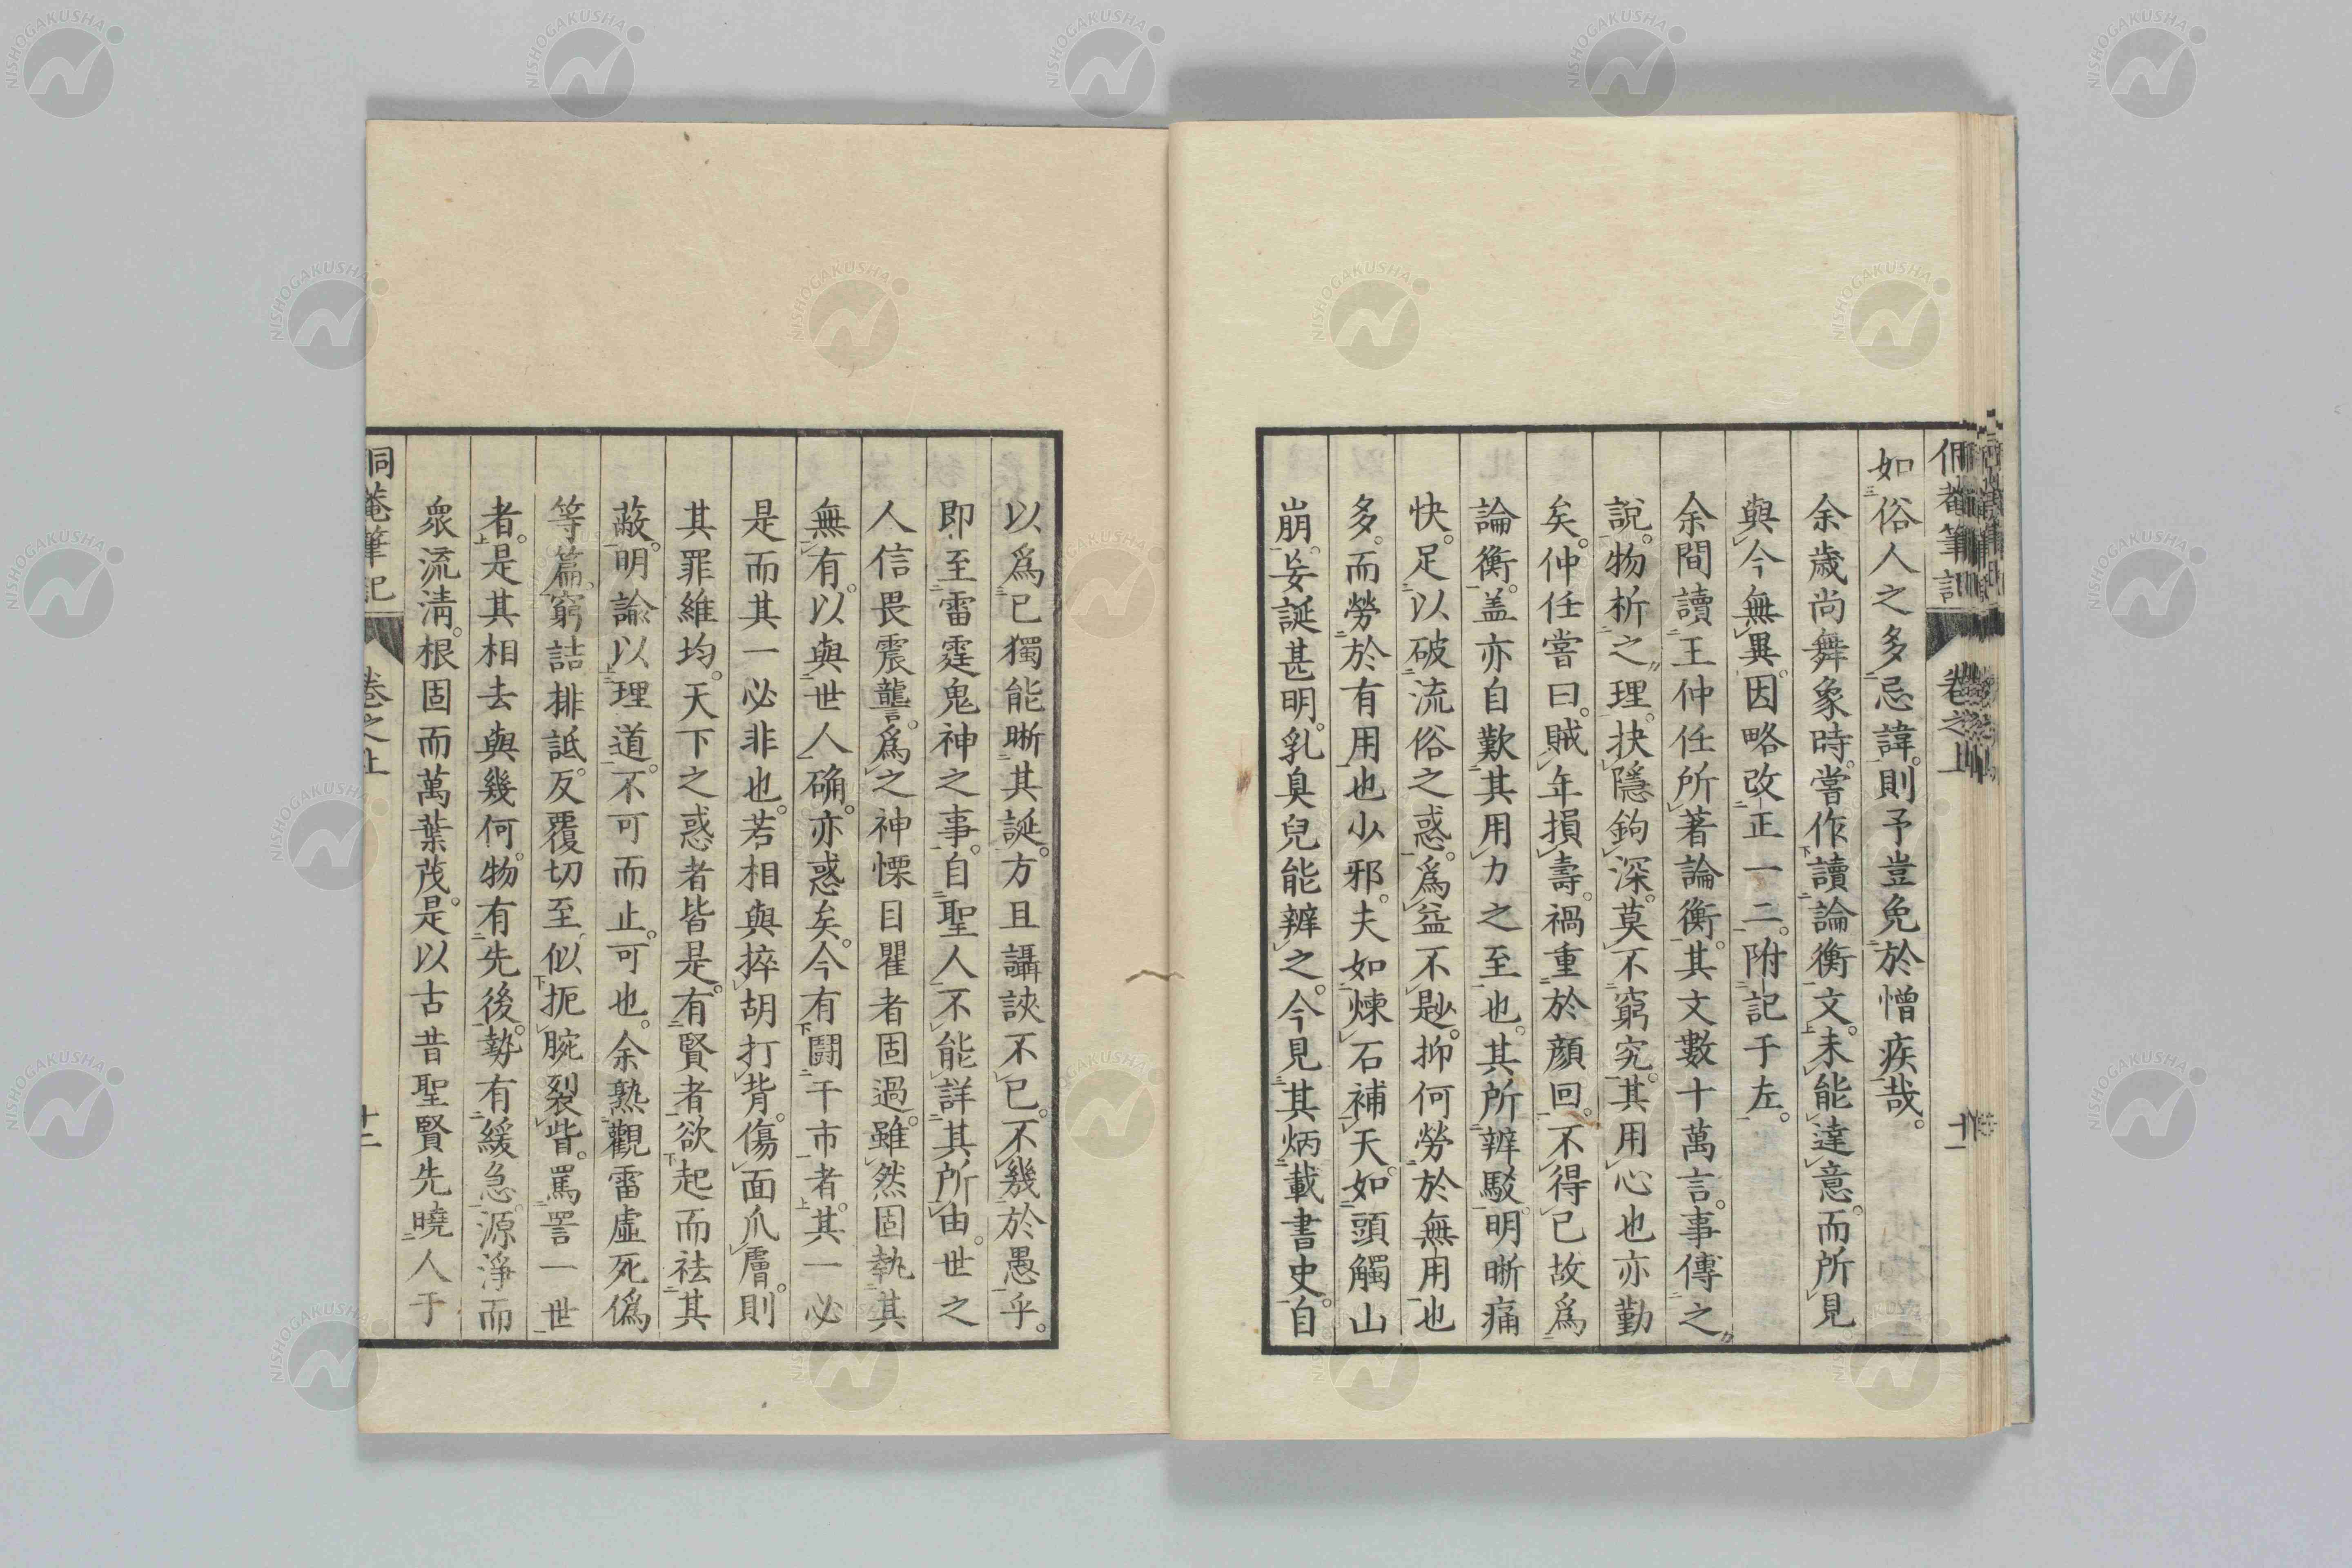 侗菴筆記 卷之上 十一
如俗人之多忌諱。則予豈免於憎疾哉。
余歲尚舞象時。嘗作讀論衡文。未能達意。而所見
與今無異。因略改正一二。附記于左。
余間讀王仲任所著論衡。其文數十萬言。事傳之
說。物析之理。抉隱鉤深。莫不窮究。其用心也亦勤
矣。仲任嘗曰。賊年損壽。禍重於顏回。不得已故為
論衡。蓋亦自歎其用力之至也。其所辨駁。明晰痛
快。足以破流俗之惑。為益不尠。抑何勞於無用也
多。而勞於有用也少邪。夫如煉石補天。如頭觸山
崩。妄誕甚明。乳臭兒能辨之。今見其炳載書史。自
以為已獨能晰其誕。方且讘諛不已。不幾於愚乎。
即至雷霆鬼神之事。自聖人不能詳其所由。世之
人信畏震讋。為之神慄目瞿者固過。雖然固執其
無有。以與世人确。亦惑矣。今有鬪于市者。其一必
是而其一必非也。若相與捽胡打背。傷面爪膚。則
其罪維均。天下之惑者皆是。有賢者欲起而祛其
蔽。明諭以理道。不可而止。可也。余熟觀雷虛死偽
等篇。窮詰排詆。反覆切至。似扼腕裂眥。罵詈一世
者。是其相去與幾何。物有先後。勢有緩急。源淨而
衆流清。根固而萬葉茂。是以古昔聖賢先曉人于
侗菴筆記 卷之上 十二
NISHOGAKUSHA